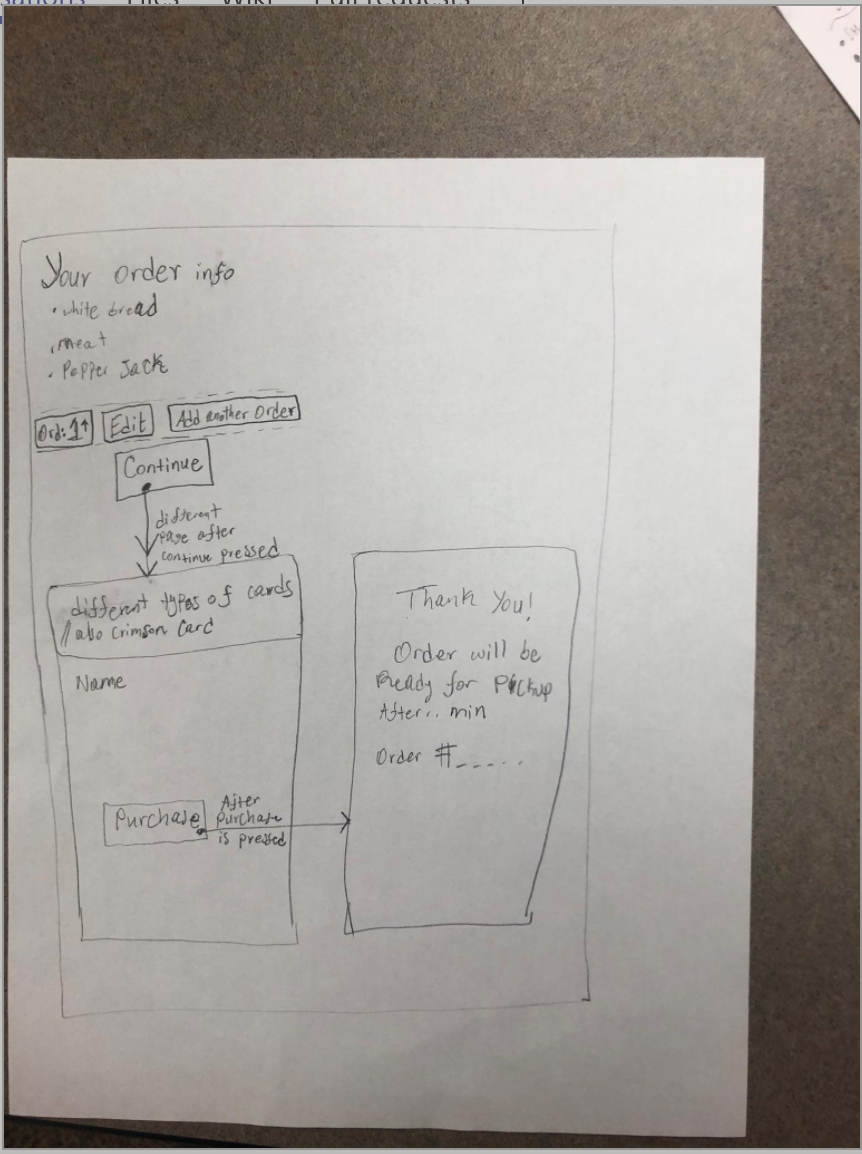 Your order info
• white bread
• meat
• Pepper Jack
Ord: 1↑ Edit Add another Order
Continue
different
page after
continue pressed
different types of cards
// also Crimson Card
Name
Purchase
After
Purchase
is pressed
Thank You!
Order will be
Ready for Pickup
After.. min
Order #_ _ _ . .